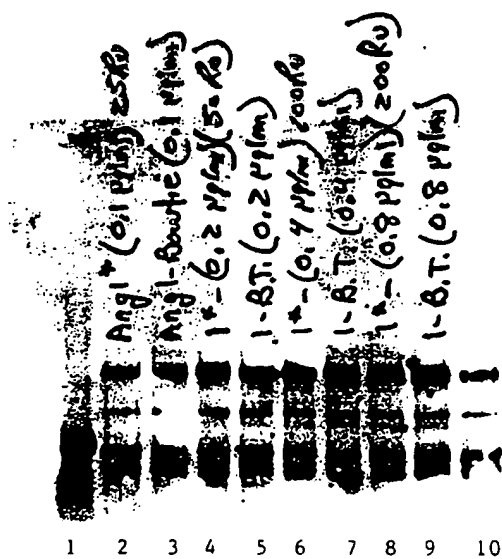 Ang 1* (0.1 µg/ml) 25RU
Ang 1-Bowtie (0.1 µg/ml)
1*-(0.2 µg/ml)(50 RU)
1-B.T. (0.2 µg/ml)
1*-(0.4 µg/ml) 100RU
1-B.T. (0.4 µg/ml)
1*-(0.8 µg/ml)(200RU)
1-B.T. (0.8 µg/ml)
1 2 3 4 5 6 7 8 9 10